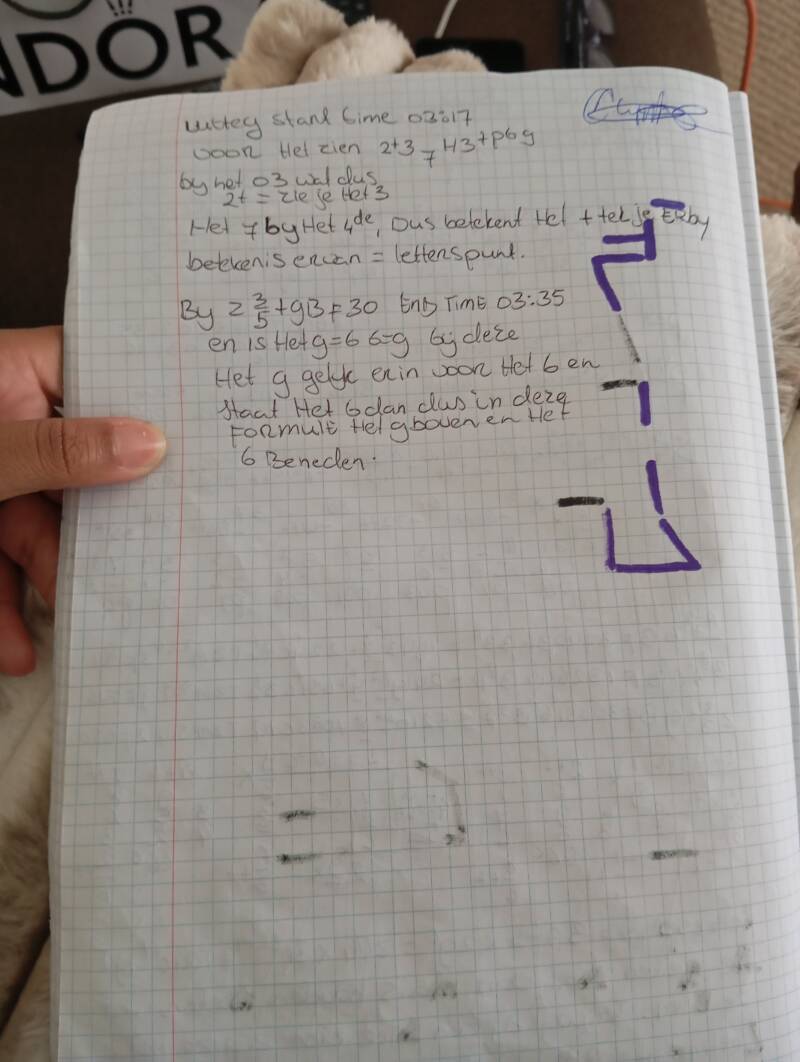 NDOR
start time 03:17
voor Het zien 2+3 7 H3+p6g
by het 03 wat dus
2+ = zie je Het 3
Het 7 by Het 4de, Dus betekent Het + tekje ER by
betekenis ervan = letterspunt.
By 2 3/5 + gB F 30 END TIME 03:35
en is Het g=6 6=g bij deze
Het g gelijk erin voor Het 6 en
staat Het 6 dan dus in deze
FORMULE Het g boven en Het
6 Beneden.